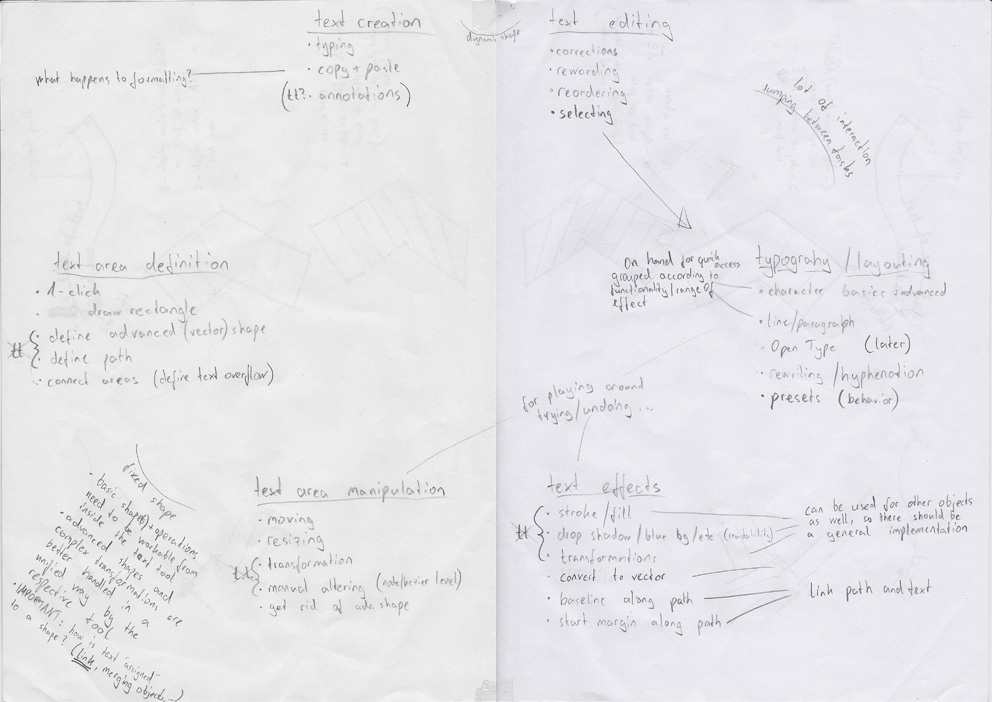 text creation
• typing
• copy + paste
(tt?• annotations)
what happens to formatting?
dynamic shape
text editing
• corrections
• rewording
• reordering
• selecting
lot of interaction
jumping between tasks
text area definition
• 1-click
• draw rectangle
• define advanced (vector) shape
• define path
• connect areas (define text overflow)
tt
On hand for quick access
grouped according to
functionality/range of
effect
typograhy / layouting
• character basics + advanced
• line/paragraph
• Open Type (later)
• rewriting /hyphenation
• presets (behavior)
for playing around
trying/undoing ...
fixed shape
• basic shape(s) + operations
need to be workable from
inside the text tool
• advanced shapes and
complex transformations are
better handled in a
unified way by the
respective tool
• IMPORTANT: how is text "assigned"
to a shape? (link, merging objects...)
text area manipulation
• moving
• resizing
• transformation
• manual altering (node/bezier level)
• get rid of adv. shape
tt
text effects
• stroke/fill
• drop shadow/blur bg/etc (readability)
• transformations
• convert to vector
• baseline along path
• start margin along path
tt
can be used for other objects
as well, so there should be
a general implementation
Link path and text